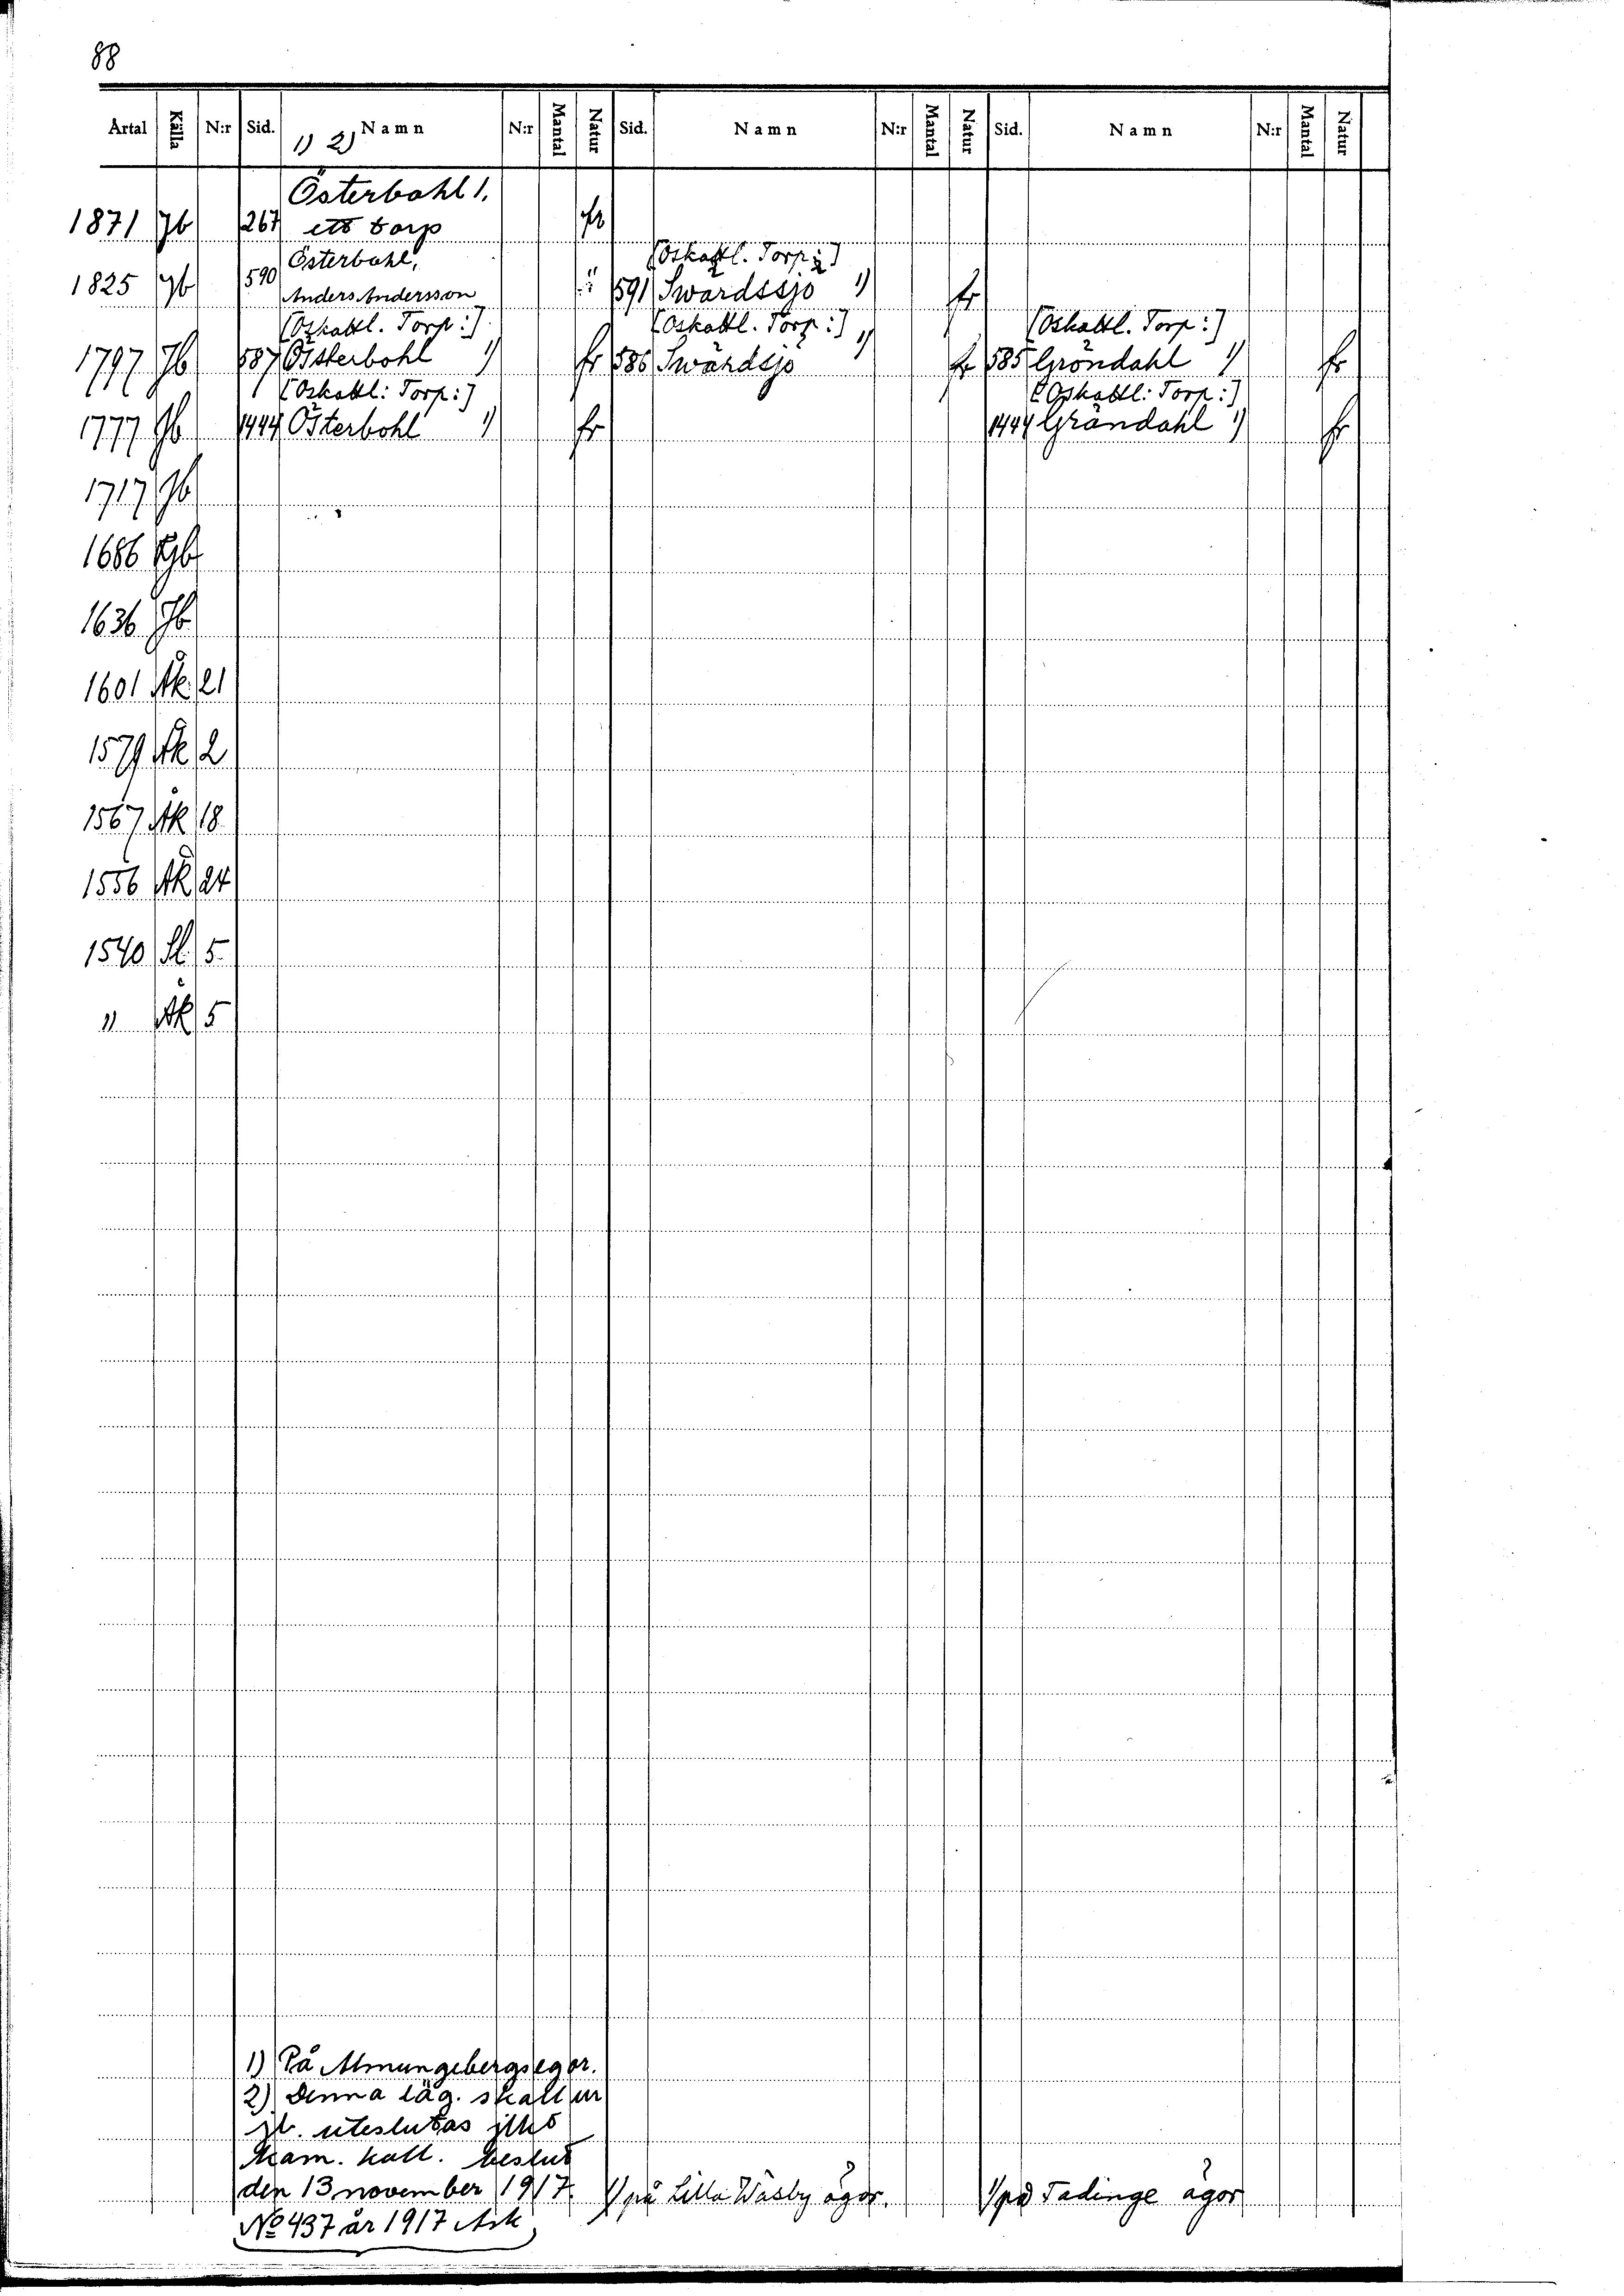 88
Årtal Källa N:r Sid. Namn N:r Mantal Natur Sid. Namn N:r Mantal Natur Sid. Namn N:r Mantal Natur
1) 2)
Österbohl 1.
1871 Jb 267 ett torp fr
Österbohl, [Oskattl. Torp:]
1825 Jb 590 Anders Andersson " 591 Swärdssjö 1) fr
[Oskattl. Torp:] [Oskattl. Torp:] [Oskattl. Torp:]
1797 Jb 587 Österbohl 1) fr 586 Swärdsjö 1) fr 585 Gröndahl 1) fr
[Oskattl: Torp:] [Oskattl: Torp:]
1777 Jb 1444 Österbohl 1) fr 1444 Gröndahl 1) fr
1717 Jb
1686 Jb
1636 Jb
1601 Åk 21
1579 Åk 2
1567 Åk 18
1556 Åk 24
1540 Sl. 5
" Åk 5
1) På Almungebergsegor.
2) Denna läg. skall ur
jb. uteslutas jlkt
Kam. koll. beslut
den 13 november 1917. 1) på Lilla Wäsby ägor. 1) på Tadinge ägor
No 437 år 1917 Ask